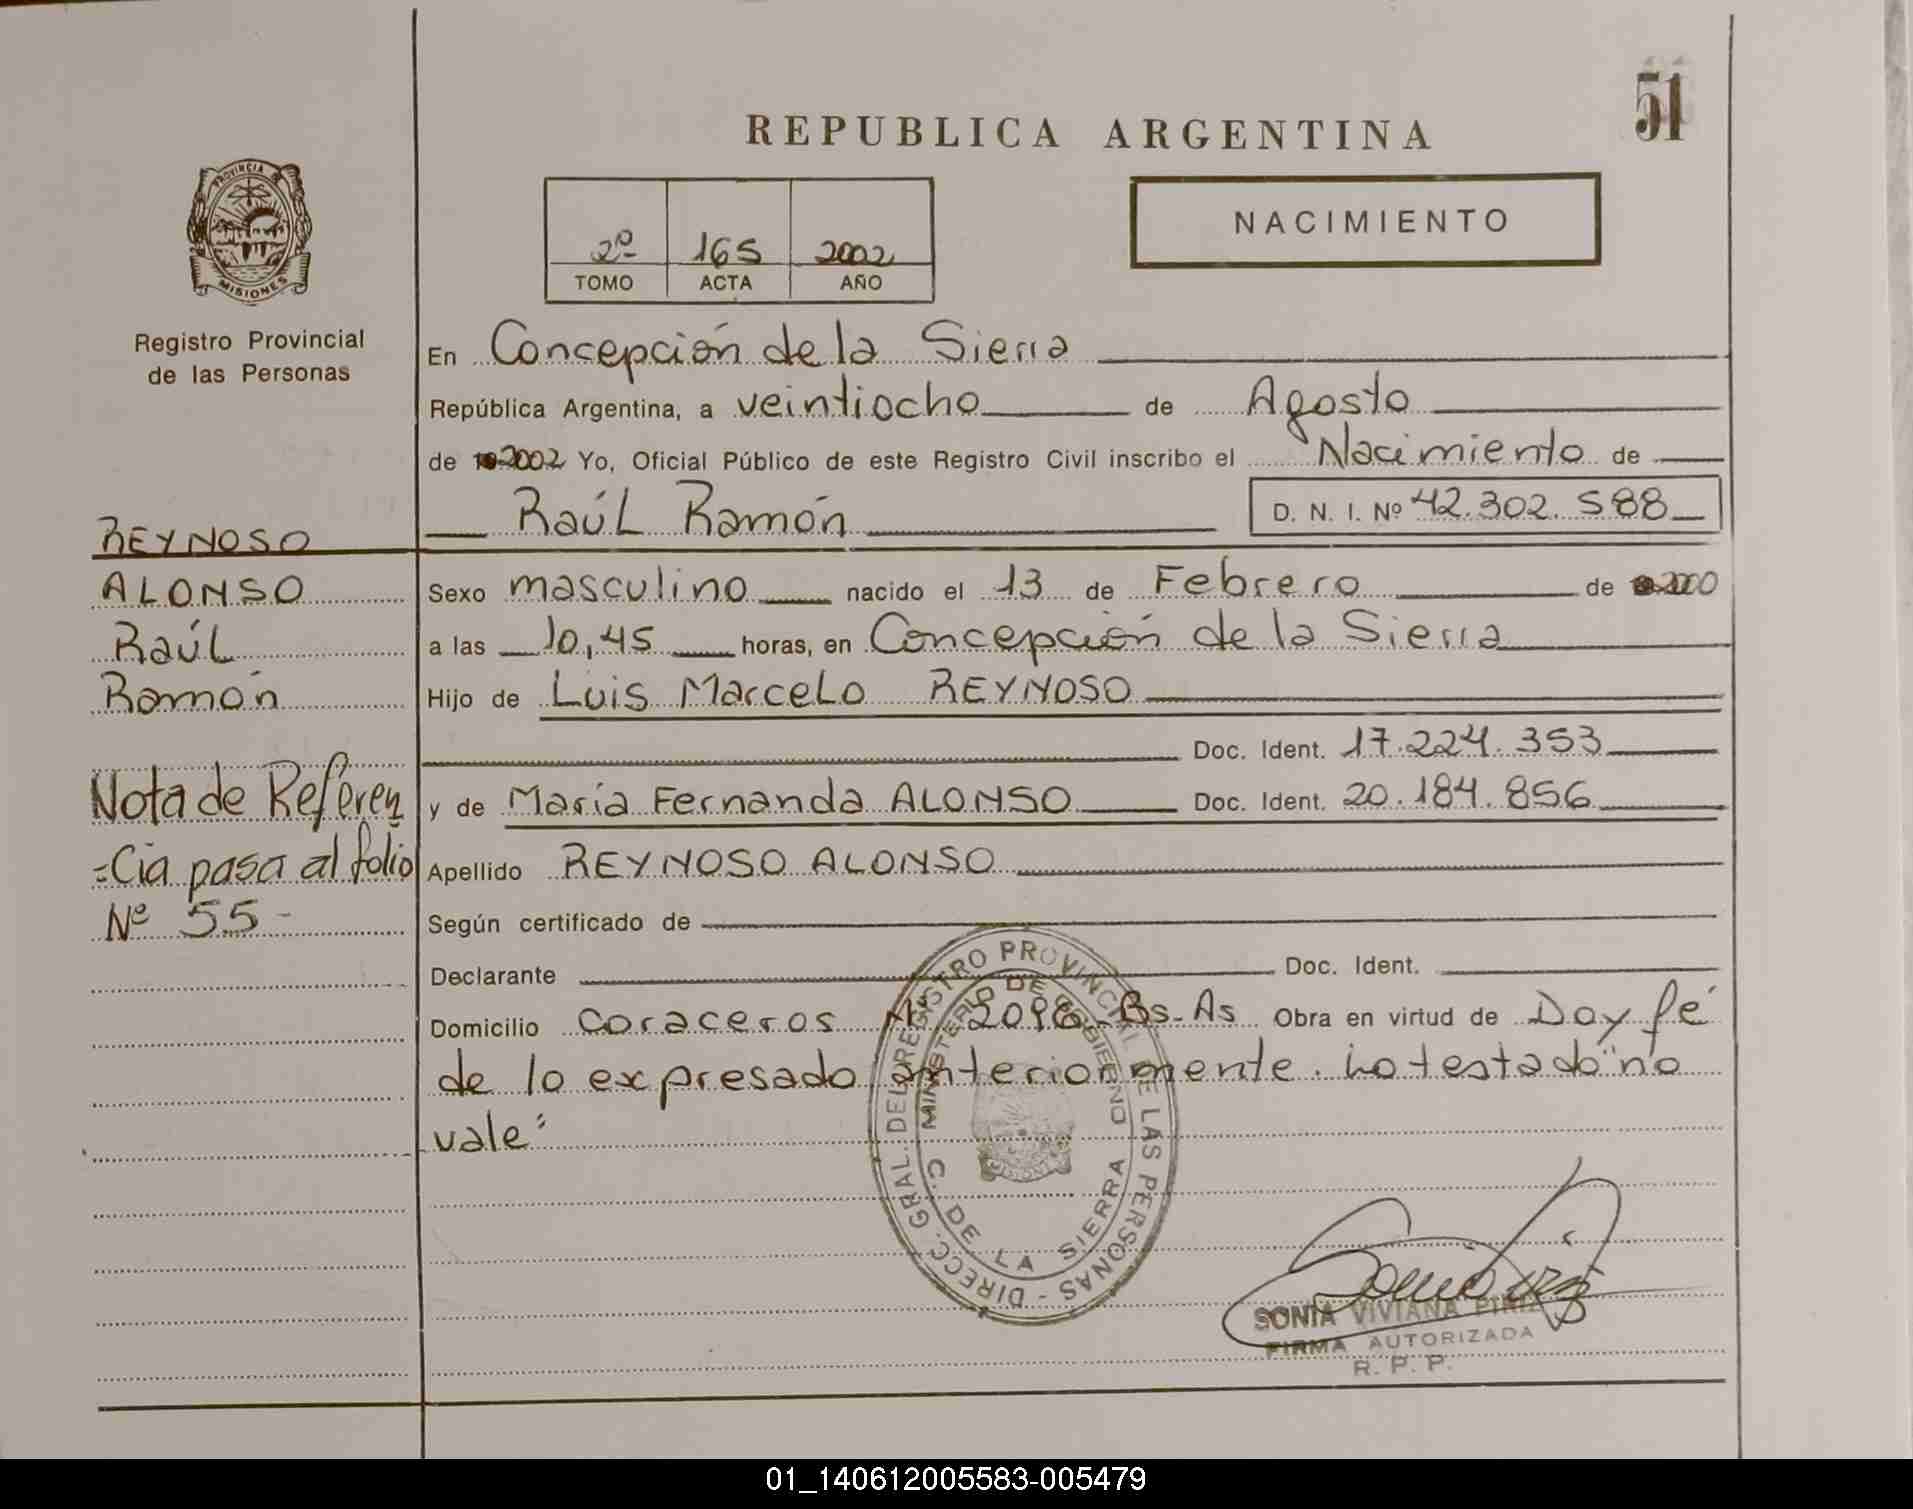 51
REPUBLICA ARGENTINA
NACIMIENTO
2º 165 2002
TOMO ACTA AÑO
PROVINCIA DE
MISIONES
Registro Provincial
de las Personas
En Concepción de la Sierra
República Argentina, a veintiocho de Agosto
de 2002 Yo, Oficial Público de este Registro Civil inscribo el Nacimiento de
Raúl Ramón D. N. I. Nº 42.302.588
REYNOSO
ALONSO
Raúl
Ramón
Sexo masculino nacido el 13 de Febrero de 2000
a las 10,45 horas, en Concepción de la Sierra
Hijo de Luis Marcelo REYNOSO
Doc. Ident. 17.224.353
y de María Fernanda ALONSO Doc. Ident. 20.184.856
Nota de Referen
=Cia pasa al folio
Nº 55-
Apellido REYNOSO ALONSO
Según certificado de
Declarante Doc. Ident.
Domicilio Coraceros Nº Bs-As Obra en virtud de Doy fé
de lo expresado anteriormente. Lo testado "no
vale"
DIRECC. GRAL. DEL REGISTRO PROVINCIAL DE LAS PERSONAS -
MINISTERIO DE GOBIERNO
C. DE LA SIERRA
SONIA VIVIANA
FIRMA AUTORIZADA
R. P. P.
01_140612005583-005479